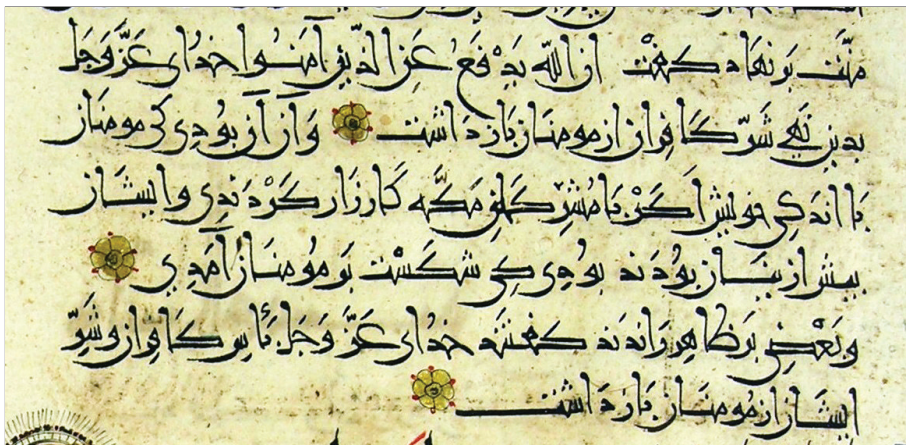 منّت بر نهاد کفت ان الله یدفع عن الذین آمنوا خدای عزّ و جل
بدین نهی شرّ کافران از مومنان باز داشت و از آن بودی کی مومنان
با اندکی خویش اکر با مشرکان مکّه کارزار کردندی و ایشان
بیش از بیشان بودند بودی کی شکست بر مومنان آمدی
و بعضی بر ظاهر راندند کفتند خدای عزّ و جل بأس کافران و شرّ
ایشان از مومنان باز داشت